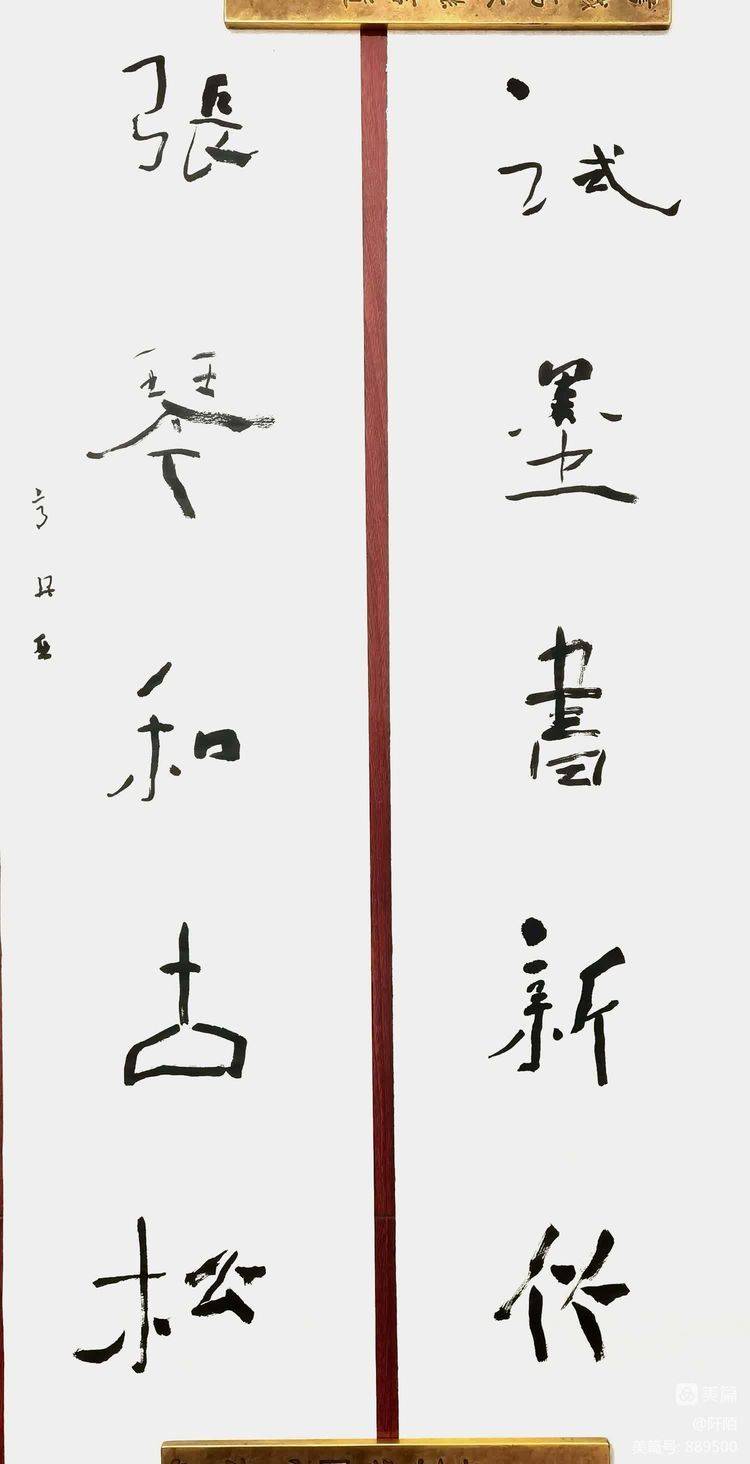 試墨書新竹
張琴和古松
美篇
@阡陌
美篇号: 889500